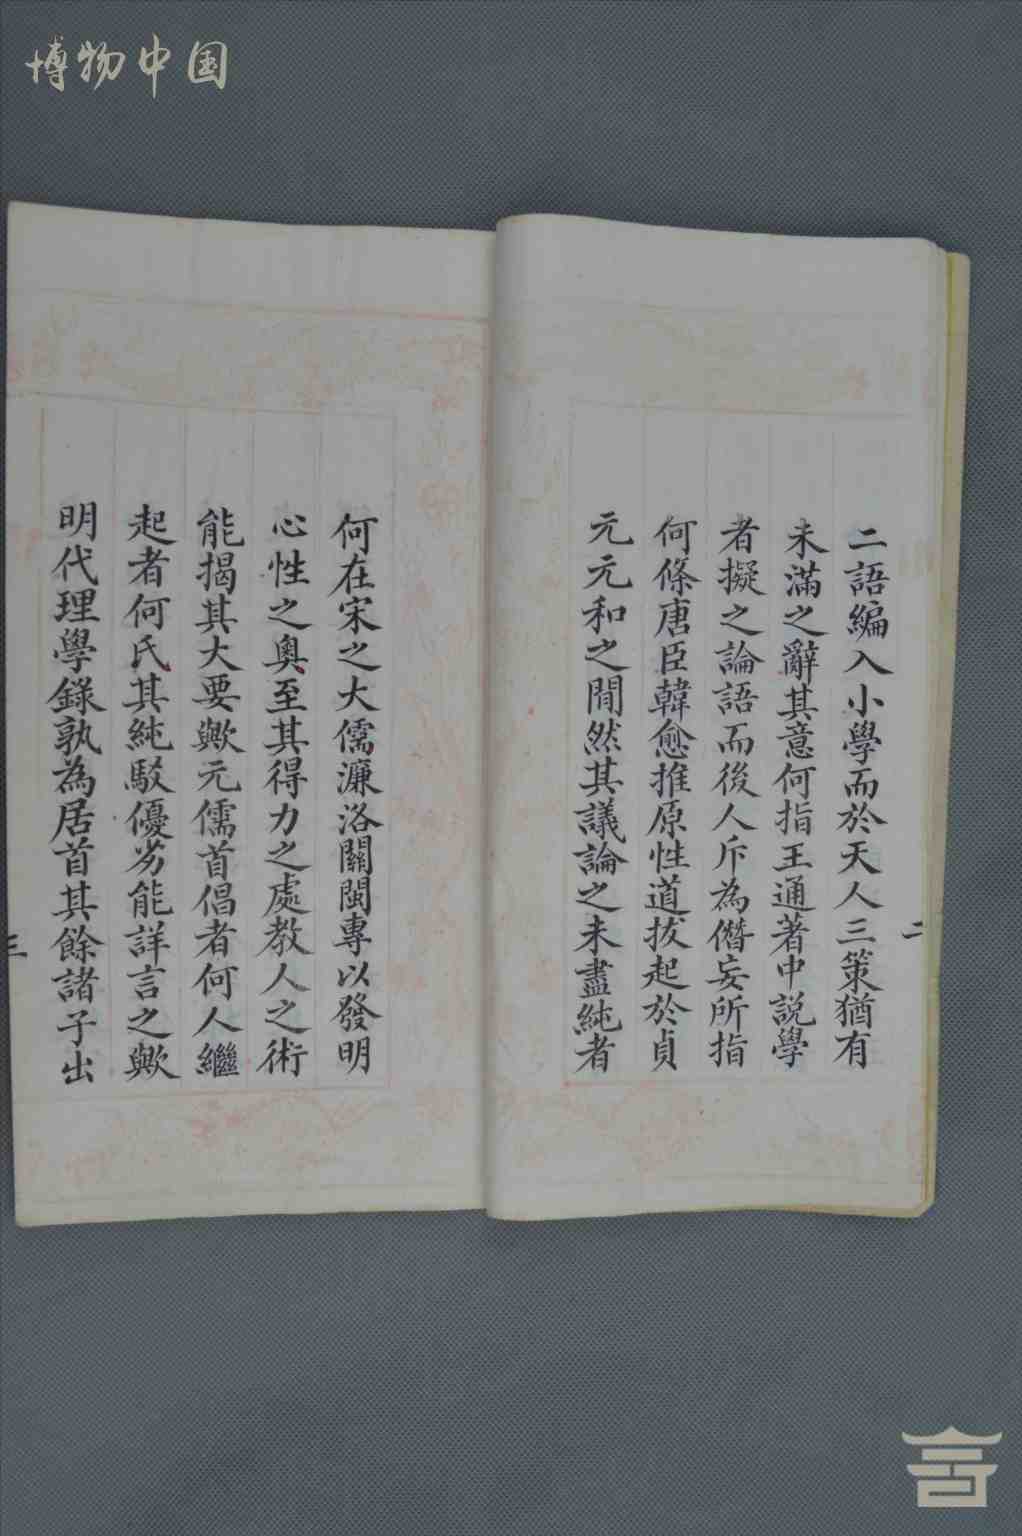 博物中国
二語編入小學而於天人三策猶有
未滿之辭其意何指王通著中說學
者擬之論語而後人斥為僭妄所指
何條唐臣韓愈推原性道拔起於貞
元元和之間然其議論之未盡純者
二
何在宋之大儒濂洛關閩專以發明
心性之奧至其得力之處教人之術
能揭其大要歟元儒首倡者何人繼
起者何氏其純駁優劣能詳言之歟
明代理學錄孰為居首其餘諸子出
三